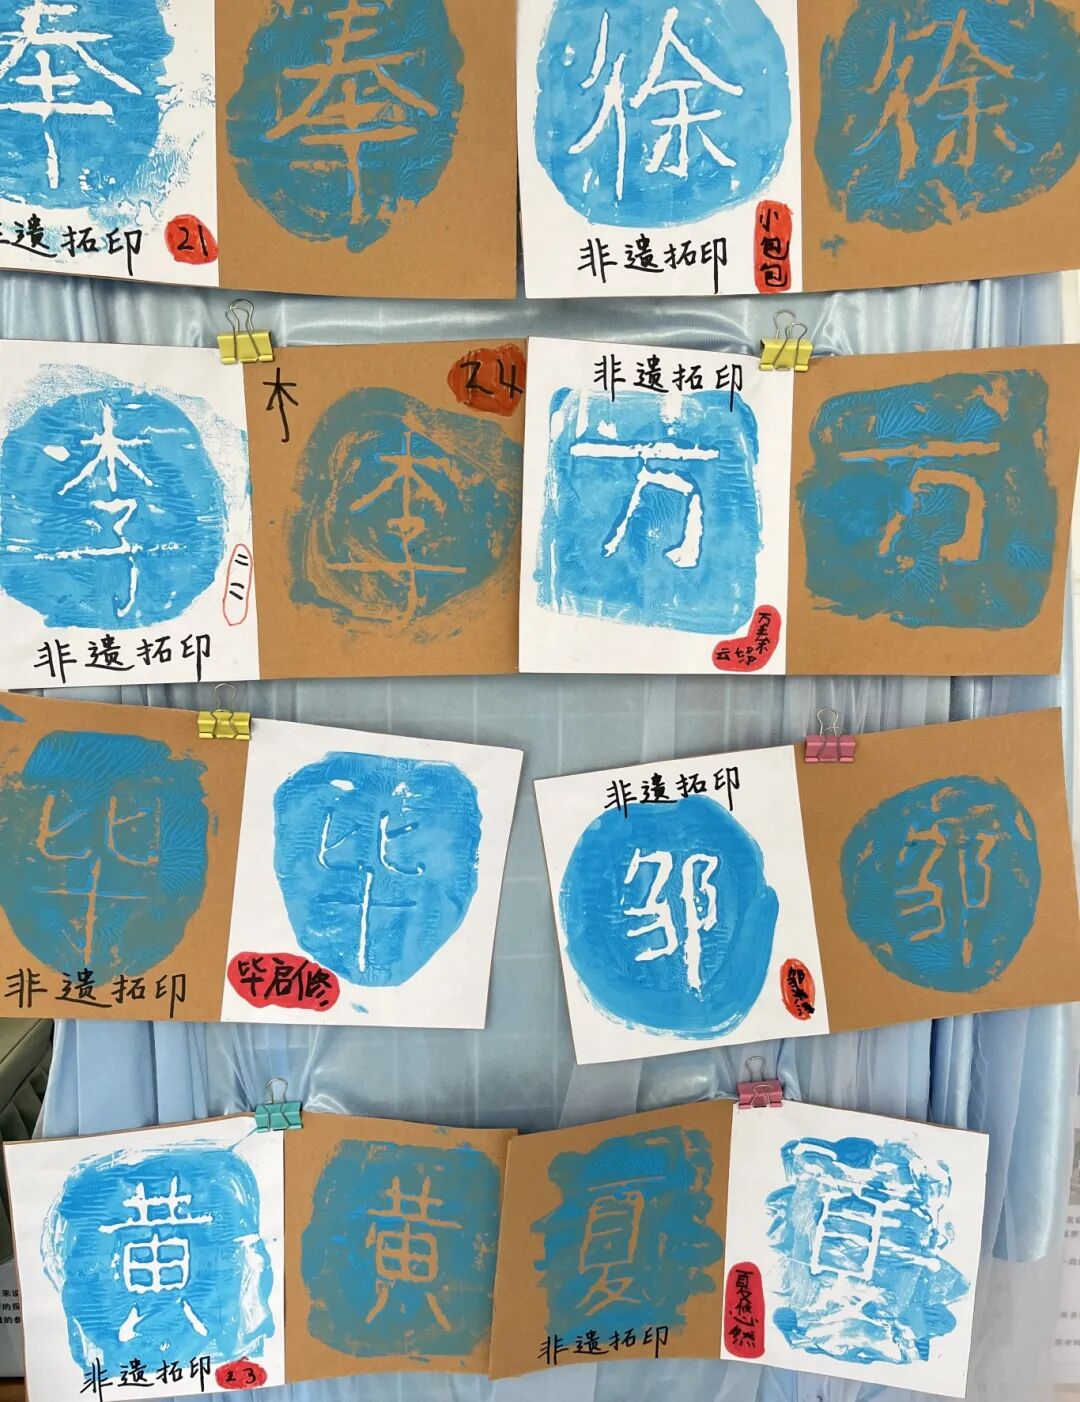 奉 奉
非遗拓印 21
徐 徐
非遗拓印
小包包
李 木 李 24
二二
非遗拓印
非遗拓印
万 万
毕 毕
非遗拓印
毕启修
非遗拓印
邹 邹
黄 黄
非遗拓印 23
夏 夏
非遗拓印
夏悠然